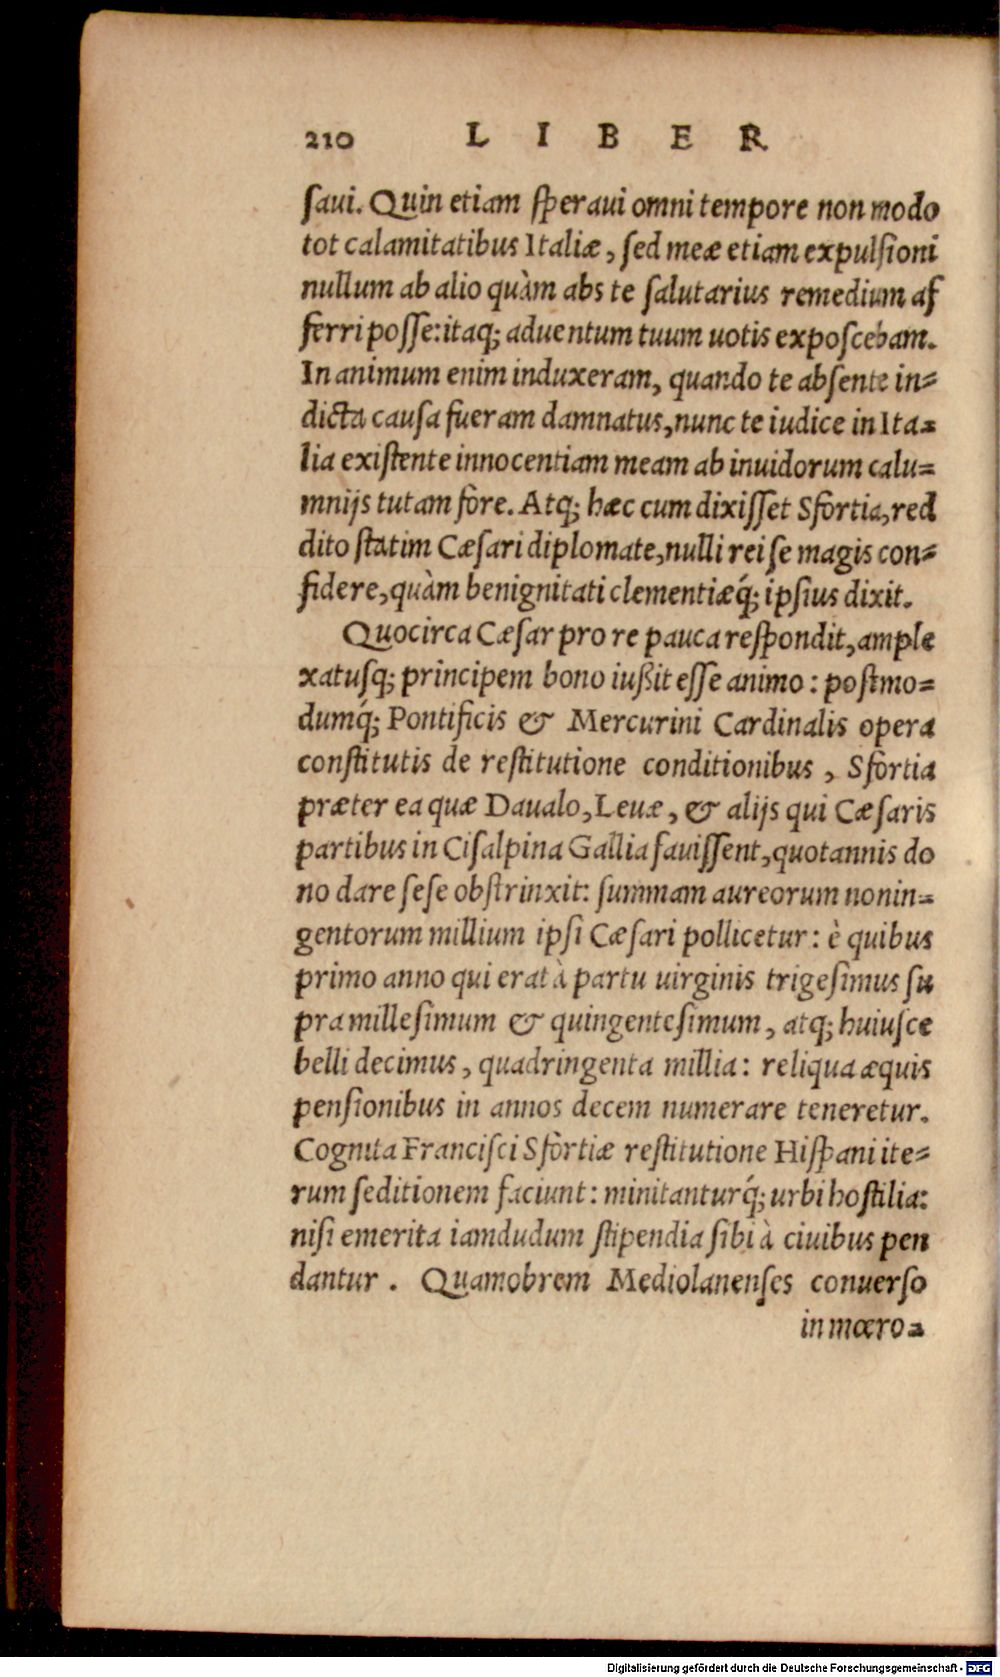 210 LIBER
ſaui. Quin etiam ſperaui omni tempore non modo
tot calamitatibus Italiæ, ſed meæ etiam expulſioni
nullum ab alio quàm abs te ſalutarius remedium af
ferri poſſe: itaq; aduentum tuum uotis expoſcebam.
In animum enim induxeram, quando te abſente in=
dicta cauſa fueram damnatus, nunc te iudice in Ita=
lia exiſtente innocentiam meam ab inuidorum calu=
mnijs tutam fore. Atq; hæc cum dixiſſet Sfortia, red
dito ſtatim Cæſari diplomate, nulli rei ſe magis con=
fidere, quàm benignitati clementiæq́; ipſius dixit.
Quocirca Cæſar pro re pauca reſpondit, ample
xatuſq; principem bono iußit eſſe animo: poſtmo=
dumq́; Pontificis & Mercurini Cardinalis opera
conſtitutis de reſtitutione conditionibus, Sfortia
præter ea quæ Daualo, Leuæ, & alijs qui Cæſaris
partibus in Ciſalpina Gallia fauiſſent, quotannis do
no dare ſeſe obſtrinxit: ſummam aureorum nonin=
gentorum millium ipſi Cæſari pollicetur: è quibus
primo anno qui erat à partu uirginis trigeſimus ſu
pra milleſimum & quingenteſimum, atq; huiuſce
belli decimus, quadringenta millia: reliqua æquis
penſionibus in annos decem numerare teneretur.
Cognita Franciſci Sfortiæ reſtitutione Hiſpani ite=
rum ſeditionem faciunt: minitanturq́; urbi hoſtilia:
niſi emerita iamdudum ſtipendia ſibi à ciuibus pen
dantur. Quamobrem Mediolanenſes conuerſo
in mœro=
Digitalisierung gefördert durch die Deutsche Forschungsgemeinschaft - DFG